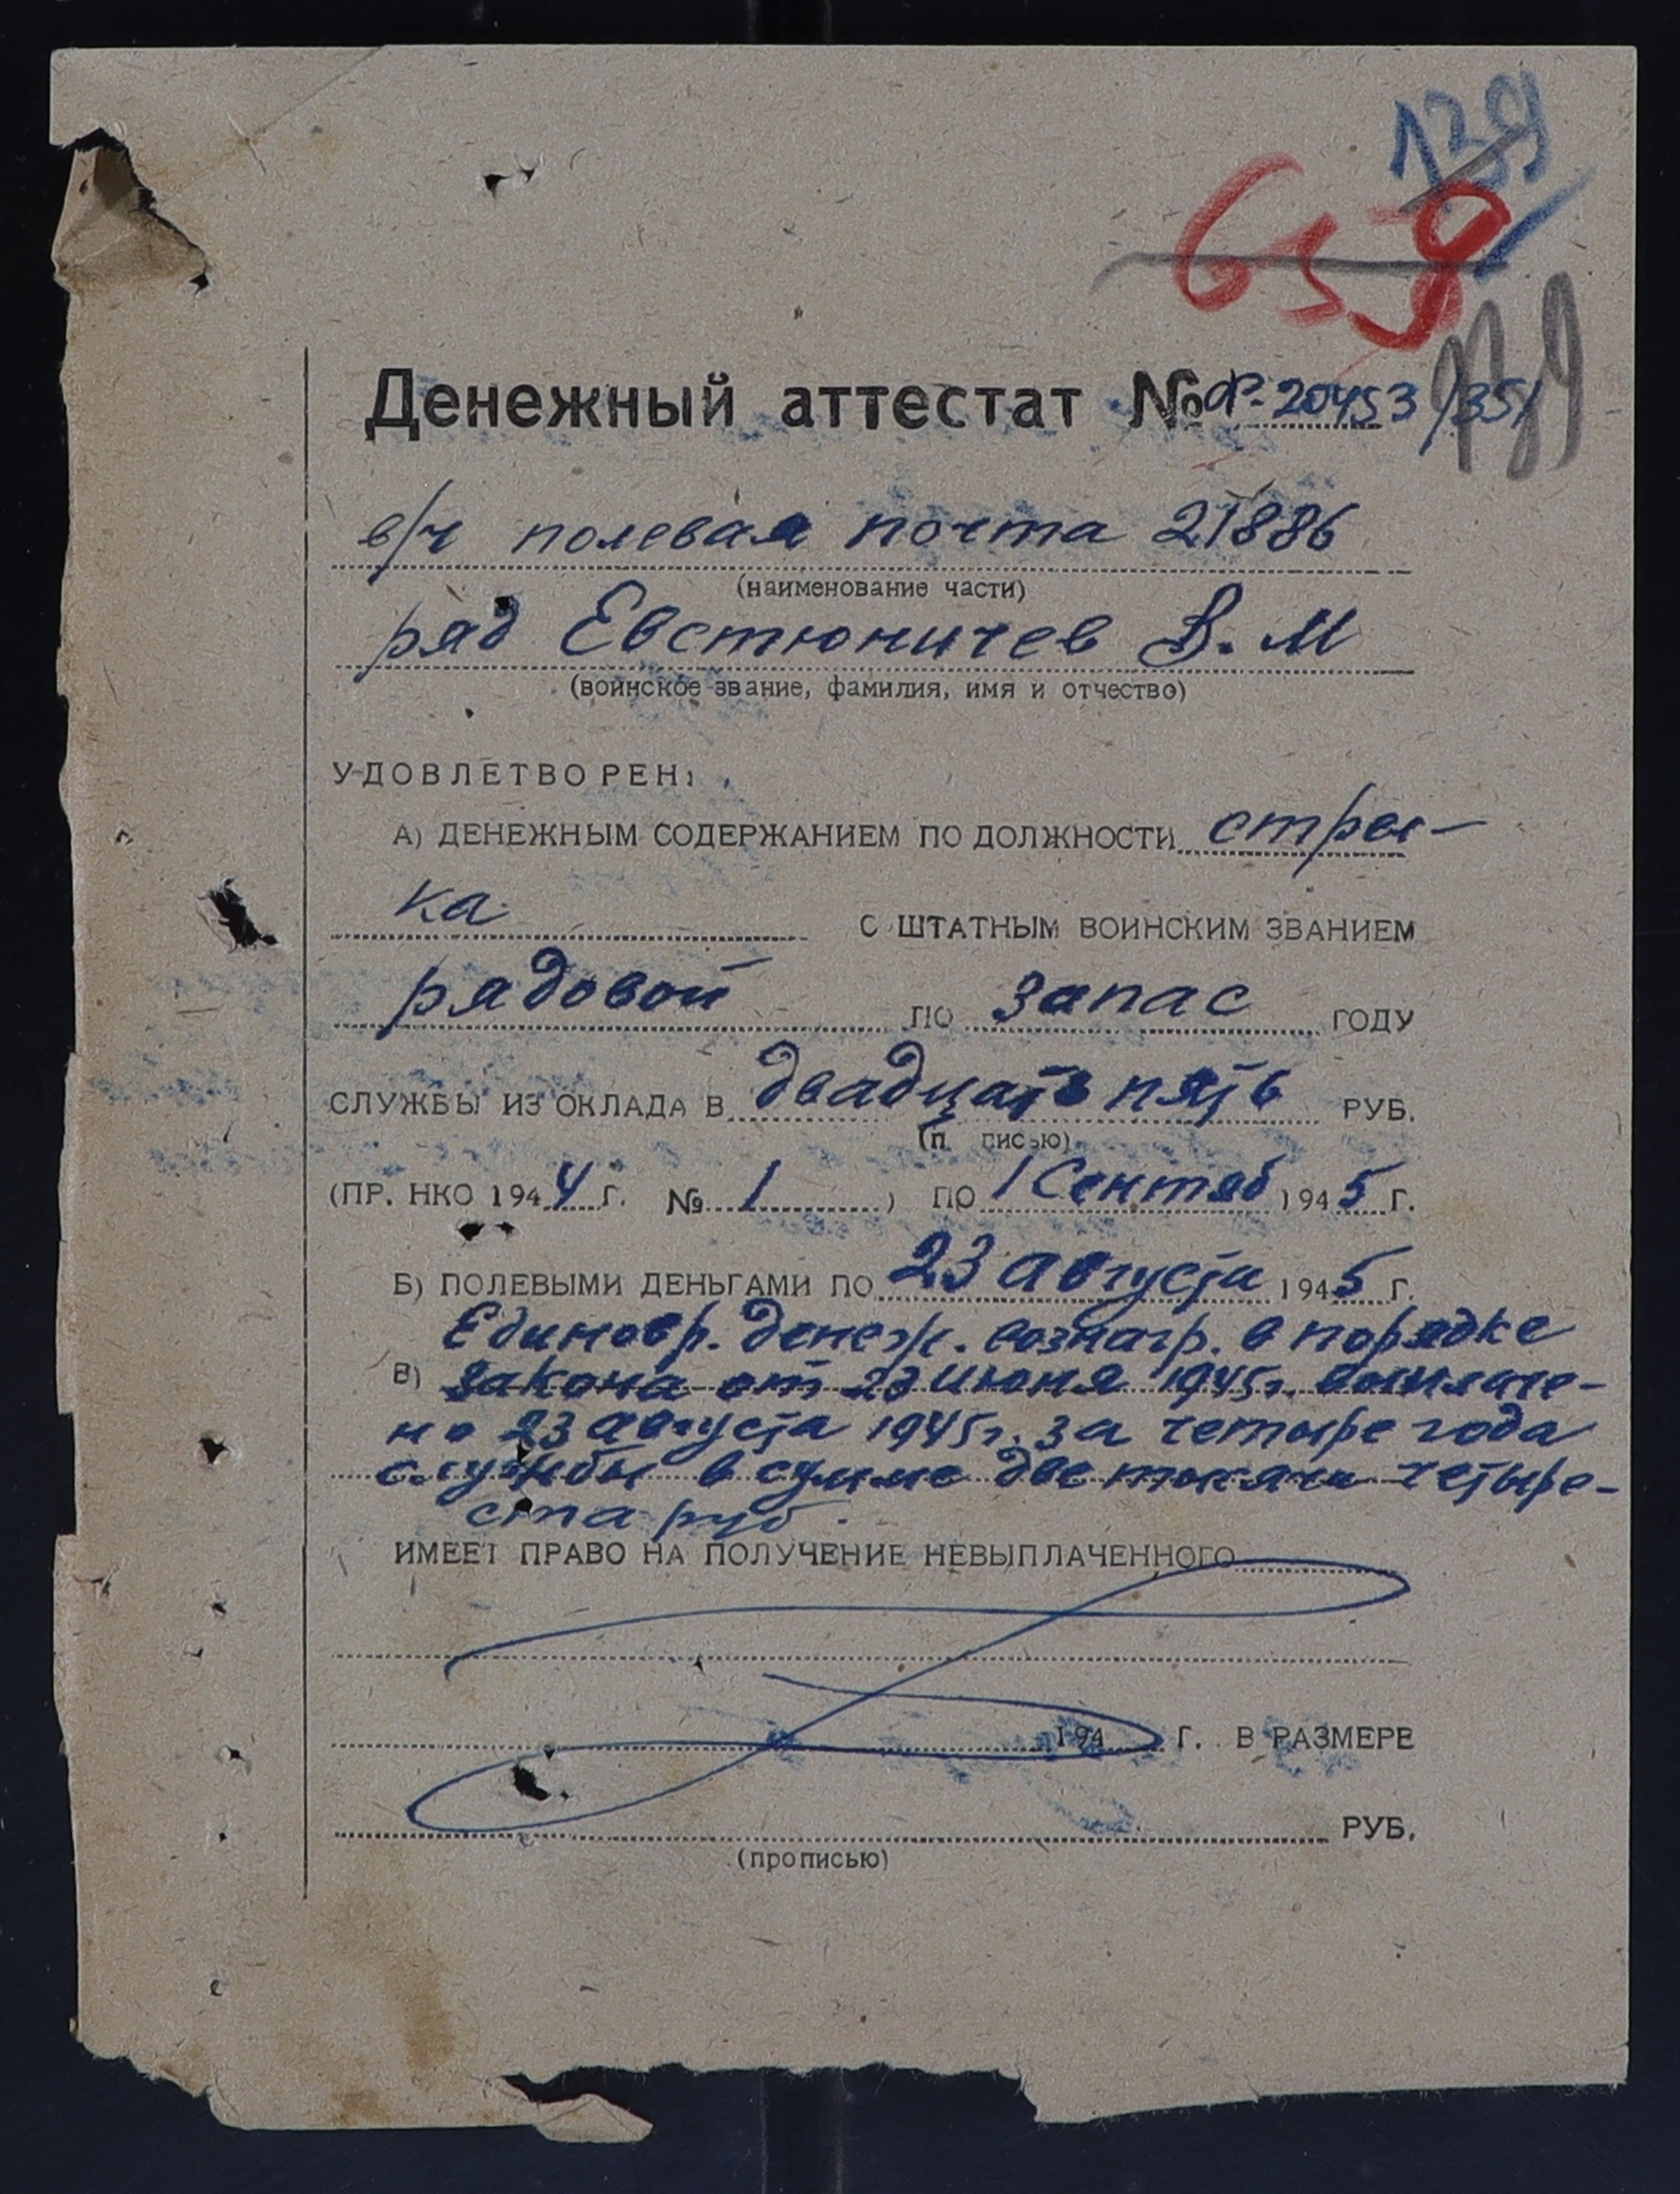 139
659
139
Денежный аттестат № Ф-20453/351
в/ч полевая почта 21886
(наименование части)
ряд Евстюничев В. М
(воинское звание, фамилия, имя и отчество)
УДОВЛЕТВОРЕН:
А) ДЕНЕЖНЫМ СОДЕРЖАНИЕМ ПО ДОЛЖНОСТИ стрел-
ка С ШТАТНЫМ ВОИНСКИМ ЗВАНИЕМ
рядовой ПО запас ГОДУ
СЛУЖБЫ ИЗ ОКЛАДА В двадцать пять РУБ.
(п писью)
(ПР. НКО 1944 Г. № 1 ) ПО 1 Сентяб 1945 Г.
Б) ПОЛЕВЫМИ ДЕНЬГАМИ ПО 23 августа 1945 Г.
Единовр. денеж. вознагр. в порядке
В) закона от 23 июня 1945г. выплаче-
но 23 августа 1945г. за четыре года
службы в сумме две тысячи четыре-
ста руб.
ИМЕЕТ ПРАВО НА ПОЛУЧЕНИЕ НЕВЫПЛАЧЕННОГО
194 Г. В РАЗМЕРЕ
РУБ.
(прописью)